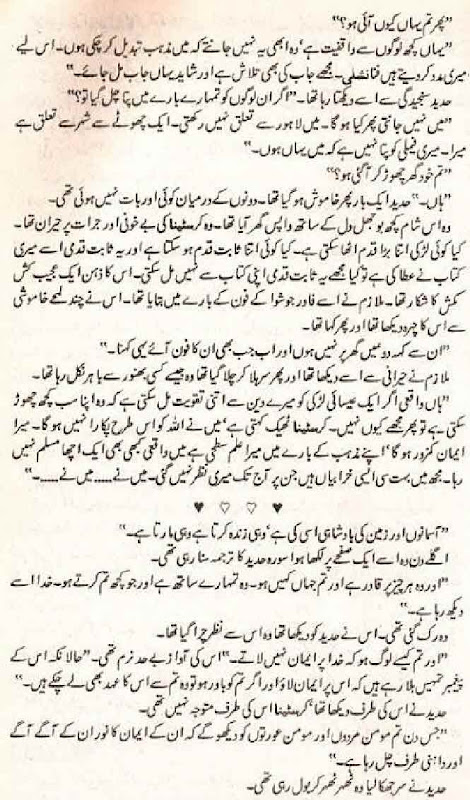 ”پھر تم یہاں کیوں آئی ہو؟“
”یہاں کچھ لوگوں سے واقفیت ہے‘ وہ ابھی یہ نہیں جانتے کہ میں مذہب تبدیل کر چکی ہوں۔ اس لیے
میری مدد کر دیتے ہیں فنانشلی۔ مجھے جاب کی بھی تلاش ہے اور شاید یہاں جاب مل جائے۔“
حدید سنجیدگی سے اسے دیکھتا رہا تھا۔ ”اگر ان لوگوں کو تمہارے بارے میں پتا چل گیا تو؟“
”میں نہیں جانتی پھر کیا ہو گا۔ میں لاہور سے تعلق نہیں رکھتی۔ ایک چھوٹے سے شہر سے تعلق ہے
میرا۔ میری فیملی کو پتا نہیں ہے کہ میں یہاں ہوں۔“
”تم خود گھر چھوڑ کر آ گئی ہو؟“
”ہاں۔“ حدید ایک بار پھر خاموش ہو گیا تھا۔ دونوں کے درمیان کوئی اور بات نہیں ہوئی تھی۔
وہ اس شام کچھ بوجھل دل کے ساتھ واپس گھر آیا تھا۔ وہ کرسٹینا کی بے خوفی اور جرات پر حیران تھا۔
کیا کوئی لڑکی اتنا بڑا قدم اٹھا سکتی ہے۔ کیا کوئی اتنا ثابت قدم ہو سکتا ہے اور یہ ثابت قدمی اسے میری
کتاب نے عطا کی ہے تو کیا مجھے یہ ثابت قدمی اپنی کتاب سے نہیں مل سکتی۔ اس کا ذہن ایک عجیب کش
مکش کا شکار تھا۔ ملازم نے اسے فادر جوشوا کے فون کے بارے میں بتایا تھا۔ اس نے چند لمحے خاموشی
سے اس کا چہرہ دیکھا تھا اور پھر کہا تھا۔
”ان سے کہہ دو میں گھر پر نہیں ہوں اور اب جب بھی ان کا فون آئے یہی کہنا۔“
ملازم نے حیرانی سے اسے دیکھا تھا اور پھر سر ہلا کر چلا گیا تھا وہ جیسے کسی بھنور سے باہر نکل رہا تھا۔
”ہاں واقعی اگر ایک عیسائی لڑکی کو میرے دین سے اتنی تقویت مل سکتی ہے کہ وہ اپنا سب کچھ چھوڑ
سکتی ہے تو پھر مجھے کیوں نہیں۔ کرسٹینا ٹھیک کہتی ہے‘ میں نے اللہ کو اس طرح پکارا نہیں ہو گا۔ میرا
ایمان کمزور ہو گا‘ اپنے مذہب کے بارے میں میرا علم سطحی ہے میں واقعی کبھی بھی ایک اچھا مسلم نہیں
رہا۔ مجھ میں بہت سی ایسی خرابیاں ہیں جن پر آج تک میری نظر نہیں گئی۔ میں نے..... میں نے.....۔“
♥ ♡ ♡ ♥
”آسمانوں اور زمین کی بادشاہی اسی کی ہے‘ وہی زندہ کرتا ہے وہی مارتا ہے۔“
اگلے دن وہ اسے ایک صفحے پر لکھا ہوا سورہ حدید کا ترجمہ سنا رہی تھی۔
”اور وہ ہر چیز پر قادر ہے اور تم جہاں کہیں ہو۔ وہ تمہارے ساتھ ہے اور جو کچھ تم کرتے ہو۔ خدا اسے
دیکھ رہا ہے۔“
وہ رک گئی تھی۔ اس نے حدید کو دیکھا تھا وہ اس سے نظر چرا گیا تھا۔
”اور تم کیسے لوگ ہو کہ خدا پر ایمان نہیں لاتے۔“ اس کی آواز بے حد نرم تھی۔ ”حالانکہ اس کے
پیغمبر تمہیں بلا رہے ہیں کہ اس پر ایمان لاؤ اور اگر تم کو باور ہو تو وہ تم سے اس کا عہد بھی لے چکے ہیں۔“
حدید نے اس کی طرف دیکھا تھا‘ کرسٹینا اس کی طرف متوجہ نہیں تھی۔
”جس دن تم مومن مردوں اور مومن عورتوں کو دیکھو گے کہ ان کے ایمان کا نور ان کے آگے آگے
اور داہنی طرف چل رہا ہے۔“
حدید نے سر جھکا لیا وہ ٹھہر ٹھہر کر بول رہی تھی۔